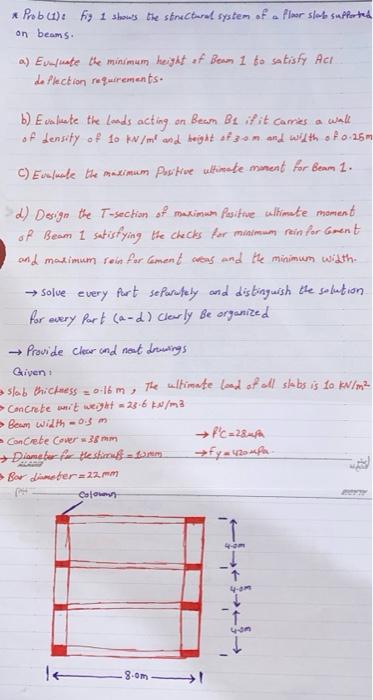 * Prob (1): Fig 1 shows the structural system of a floor slab supported
on beams.
a) Evaluate the minimum height of Beam 1 to satisfy ACI
deflection requirements.
b) Evaluate the loads acting on Beam B1 if it carries a wall
of density of 10 kN/m³ and height of 3.0 m and width of 0.25m
C) Evaluate the maximum Positive ultimate moment for Beam 1.
d) Design the T-section of maximum Positive ultimate moment
of Beam 1 satisfying the checks for minimum reinforcement
and maximum reinforcement areas and the minimum width.
→ solve every Part separately and distinguish the solution
for every Part (a-d) clearly Be organized
→ Provide clear and neat drawings
Given:
slab thickness = 0.16 m, The ultimate load of all slabs is 10 kN/m²
Concrete unit weight = 23.6 kN/m3
Beam width = 0.3 m
Concrete Cover = 38 mm → f'c = 28 MPa
→ Diameter for the stirrups = 10mm → fy = 420 MPa.
Bar diameter = 22 mm
Coloumn
4.0m
4.0m
4.0m
8.0m